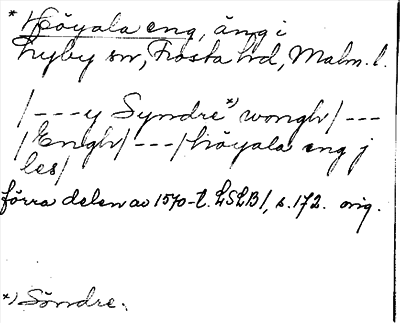 * Höyala eng, äng i
Hyby sn, Frosta hd, Malm. l.
/---y Syndre*) wongh/---
/Engh/---/höyala eng j
les/
förra delen av 1570-t. LSLB 1, s. 172. orig.
*) Söndre.